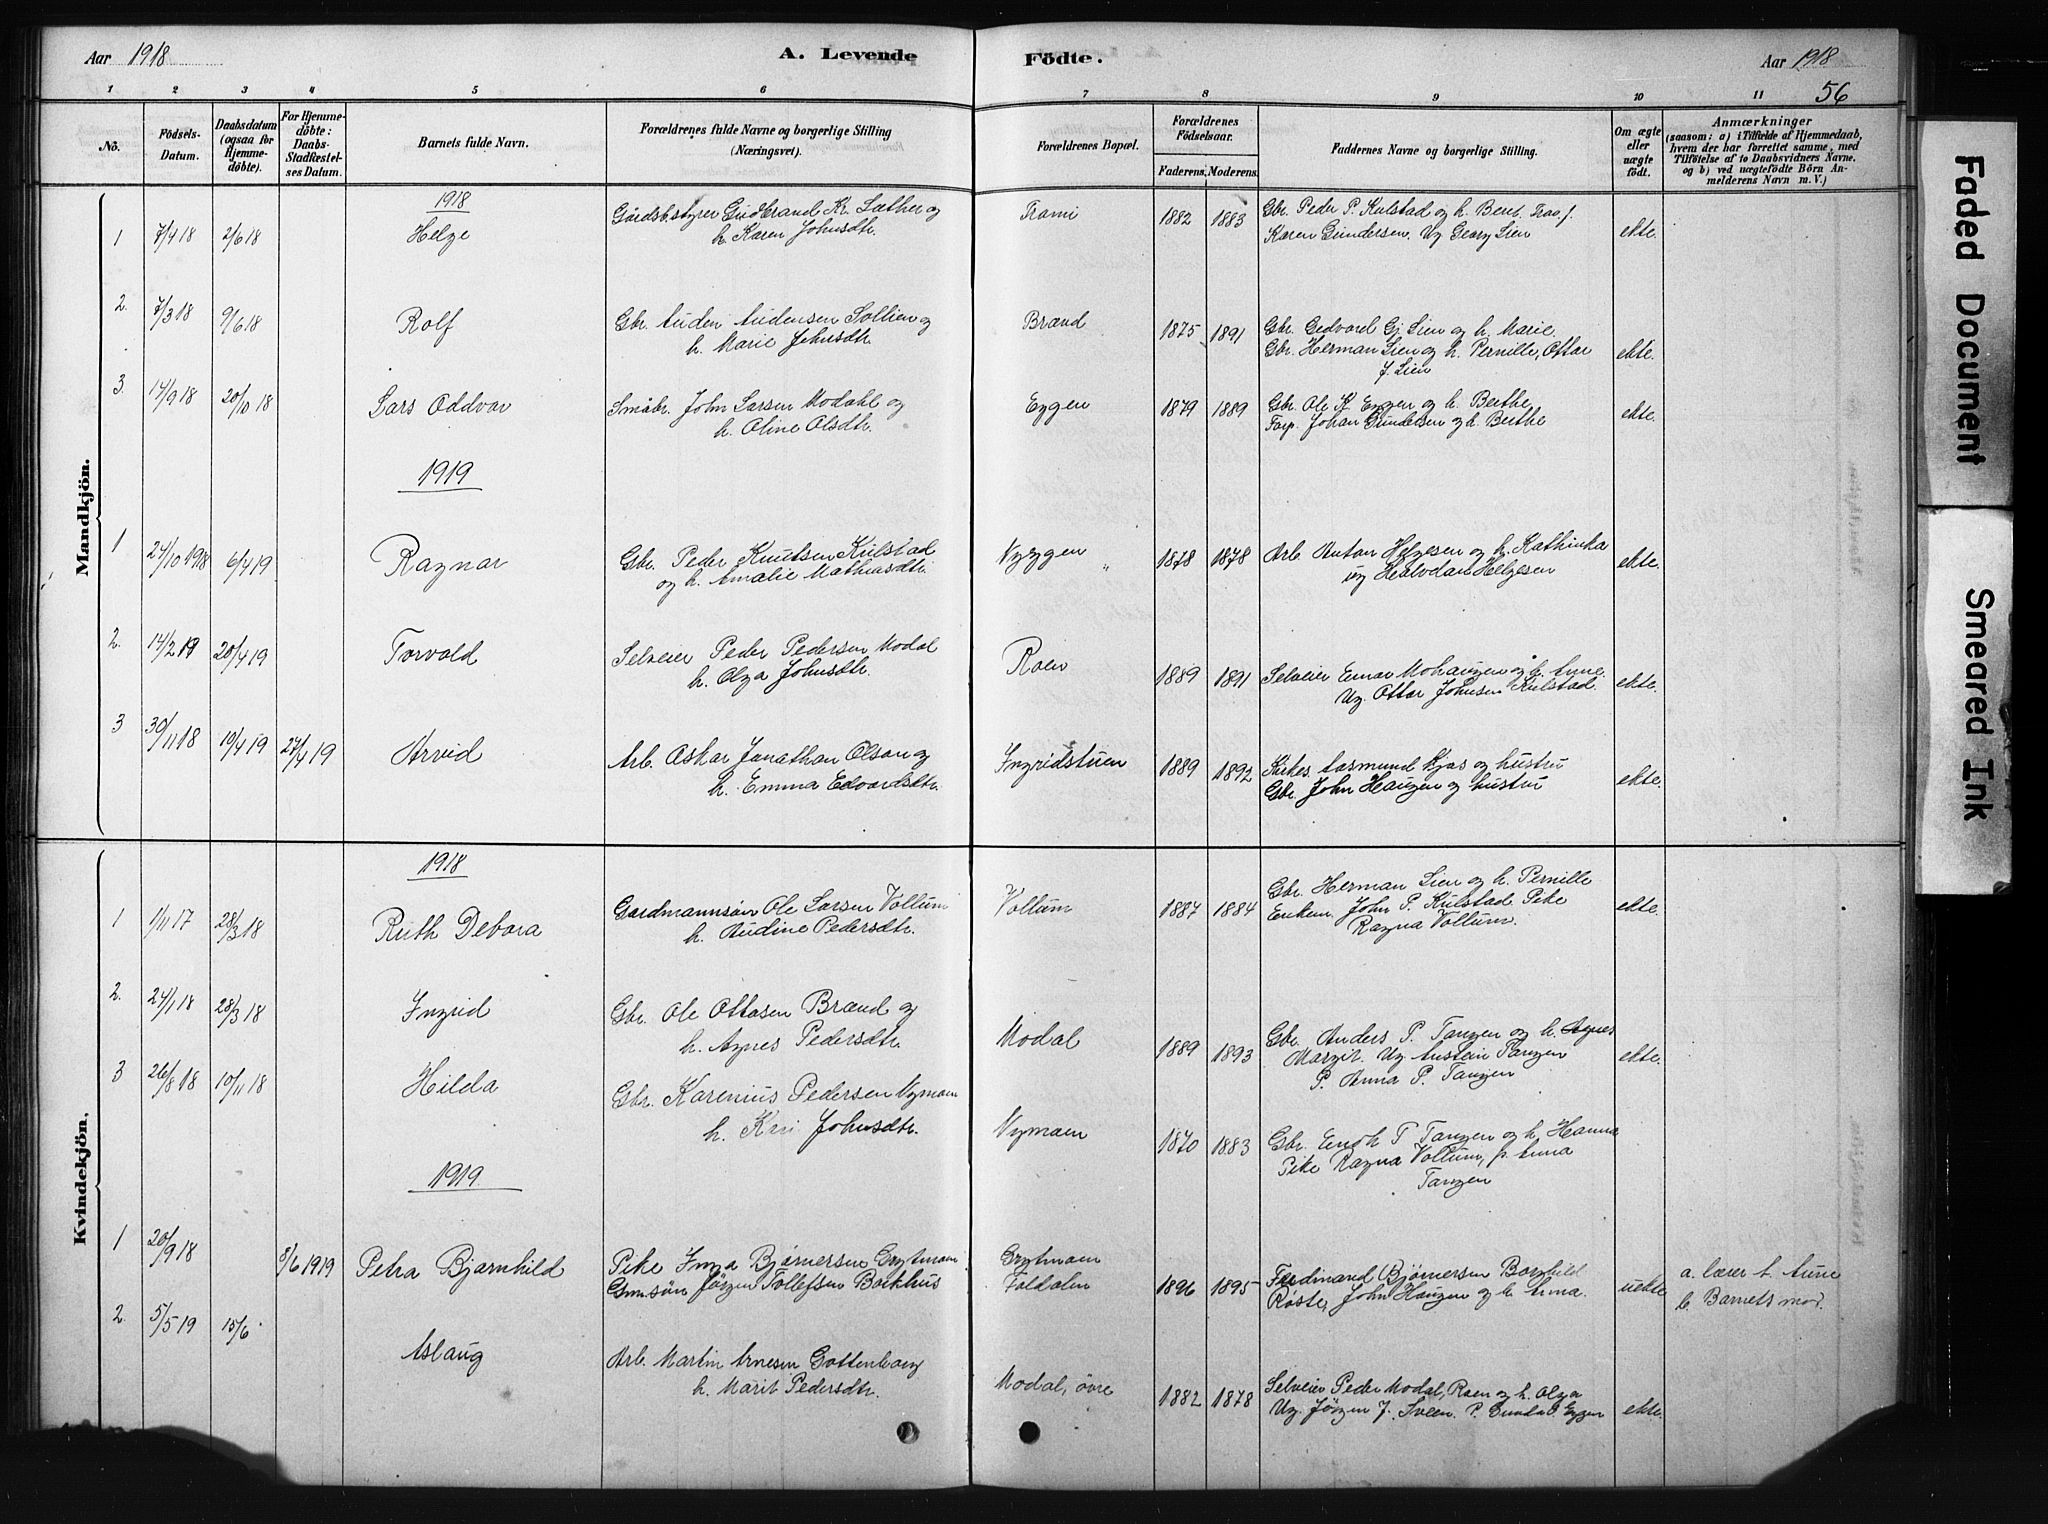 Aar 1918
A. Levende Födte.
Aar 1918
56
1 2 3 4 5 6 7 8 9 10 11
No.
Födsels-Datum.
Daabsdatum (ogsaa for Hjemmedöbte).
For Hjemmedöbte: Daabs-Stadfæstelses Datum.
Barnets fulde Navn.
Forældrenes fulde Navne og borgerlige Stilling (Næringsvei).
Forældrenes Bopæl.
Forældrenes Födselsaar.
Faderens. Moderens.
Faddernes Navne og borgerlige Stilling.
Om ægte eller uægte födt.
Anmærkninger
(saasom: a) i Tilfælde af Hjemmedaab, hvem der har forrettet samme, med Tilföielse af to Daabsvidners Navne. og b) ved uægtefödte Börn Anmelderens Navn m. V.)
Mandkjön.
1918
1 7/4 18 2/6 18 Helge Gårdsbstyrer Gudbrand Kr. Sæther og
h. Karen Johnsdtr. Trami 1882 1883 Gbr. Peder P. Kulstad og h. Berit
Karen Gundersen. Ug Georg Lien ekte.
2. 7/3 18 9/6 18 Rolf Gbr. Auden Audensen Sollien og
h. Marie Johnsdtr. Brænd 1875 1891 Gbr. Gedvard Gj Lien og h. Marie
Gbr. Herman Lien og h. Pernille, Ottar
J. Lien ekte.
3. 14/9 18 20/10 18 Lars Oddvar Småbr. John Larsen Modahl og
h. Oline Olsdtr. Eggen 1879 1889 Gbr. Ole K. Eggen og h. Berthe
Forp. Johan Gundersen og h. Berthe ekte.
1919
1 24/10 1918 6/4 19 Ragnar Gbr. Peder Knutsen Kulstad
og h. Amalie Mathiasdtr. Nyggen 1878 1878 Arb. Anton Helgesen og h. Kathinka
ug Halvdan Helgesen ekte.
2. 14/2 19 20/4 19 Torvald Selveier Peder Pedersen Modal
h. Olga Johnsdtr. Roen 1889 1891 Selveier Einar Mohaugen og h. Anne.
Ug. Ottar Johnsen Kulstad. ekte.
3 30/11 18 19/4 19 27/4 19 Arvid Arb. Oskar Jonathan Olson og
h. Emma Edvardsdtr. Ingridstuen 1889 1892 Kirkes. Aasmund Kjos og hustru
Gbr. John Haugen og hustru ekte.
Kvindekjön.
1918
1 1/11 17 28/3 18 Ruth Debora Gardmannsön Ole Larsen Vollum
h. Audine Pedersdtr. Vollum 1887 1884 Gbr. Herman Lien og h. Pernille
Enkem. John P. Kulstad Pike
Ragna Vollum. ekte.
2. 24/1 18 28/3 18 Ingrid Gbr. Ole Ottosen Brænd og
h. Agnes Pedersdtr. Modal 1889 1893 Gbr. Anders P. Tangen og h. Agnes
Margit. Ug Austein Tangen
P. Anna P. Tangen ekte.
3 26/8 18 10/11 18 Hilda Gbr. Karenius Pedersen Nymoen
h. Kari Johnsdtr. Nymoen 1870 1883 Gbr. Enok P. Tangen og h. Hanna
Pike Ragna Vollum, p. Anna
Tangen
1919
1 20/9 18 8/6 1919 Petra Bjarnhild Pike Inga Bjørnersen Grytmoen
Gmsön Jörgen Tollefsen Bakhus Grytmoen
Foldalen 1896 1895 Ferdinand Bjørnersen Borghild
Røste, John Haugen og h. Anna. uekte a. lærer t. Aune
b. Barnets mor.
2. 5/5 19 15/6 Aslaug Arb. Martin Arnesen Gottenborg
h. Marit Pedersdtr. Modal, övre 1882 1878 Selveier Peder Modal, Roen og h. Olga
Ug. Jörgen J. Sveen. P. Gunda O. Eggen ekte.
Faded Document
Smeared Ink